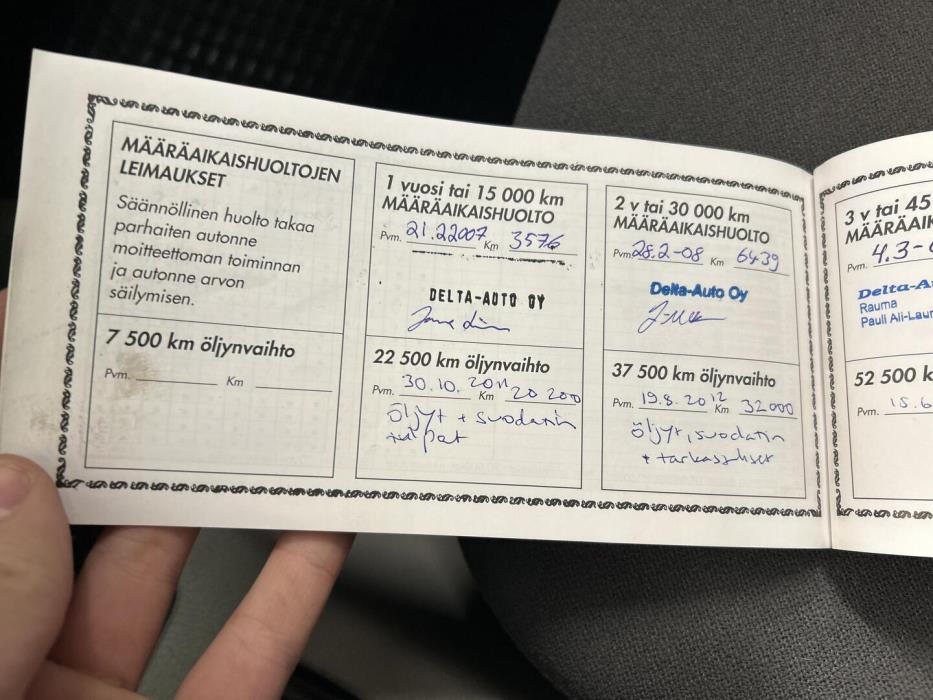 MÄÄRÄAIKAISHUOLTOJEN
LEIMAUKSET
Säännöllinen huolto takaa
parhaiten autonne
moitteettoman toiminnan
ja autonne arvon
säilymisen.
7 500 km öljynvaihto
Pvm. Km
1 vuosi tai 15 000 km
MÄÄRÄAIKAISHUOLTO
Pvm. 21.22007 Km 3576
DELTA-AUTO OY
22 500 km öljynvaihto
Pvm. 30.10. 2011 Km 20 200
öljyt + suodatin
2 v tai 30 000 km
MÄÄRÄAIKAISHUOLTO
Pvm. 28.2-08 Km 6439
Delta-Auto Oy
37 500 km öljynvaihto
Pvm. 19.8. 2012 Km 32000
öljyt, suodatin
+ tarkastukset
3 v tai 45
MÄÄRÄAIK
Pvm. 4.3-
Delta-A
Rauma
Pauli Ali-Laur
52 500 k
Pvm. 15.6